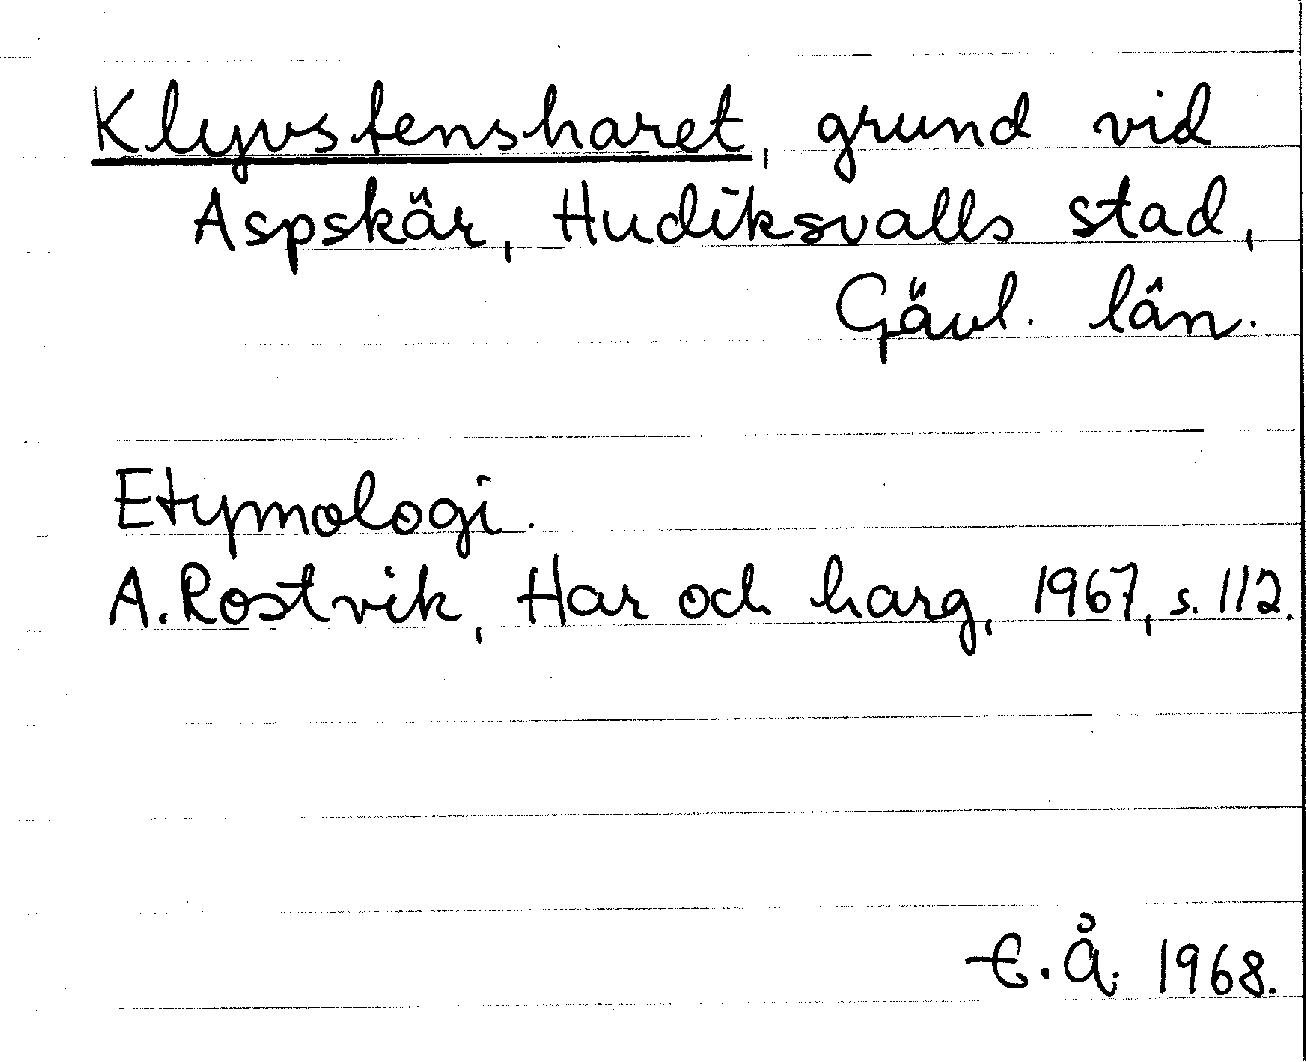 Klyvstensharet, grund vid
Aspskär, Hudiksvalls stad,
Gävl. län.
Etymologi.
A. Rostvik, Har och harg, 1967, s. 112.
E. Å. 1968.